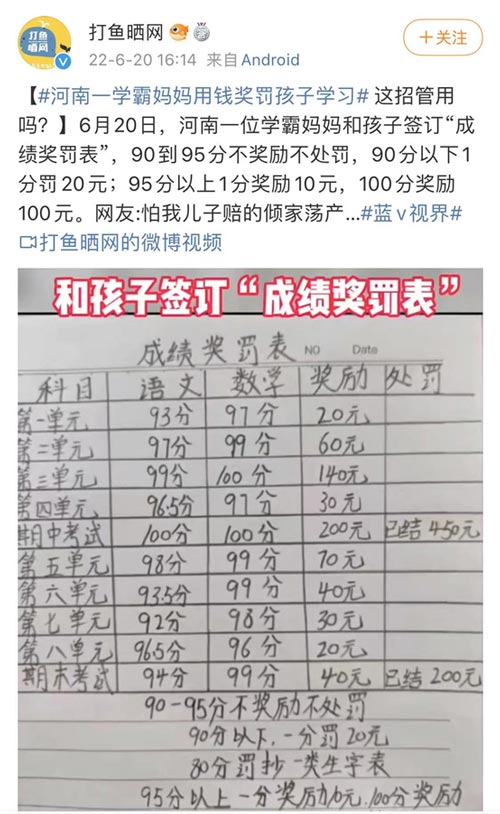 打鱼晒网
打鱼晒网
22-6-20 16:14 来自Android
+关注
【#河南一学霸妈妈用钱奖罚孩子学习# 这招管用
吗？】6月20日，河南一位学霸妈妈和孩子签订“成
绩奖罚表”，90到95分不奖励不处罚，90分以下1
分罚20元；95分以上1分奖励10元，100分奖励
100元。网友:怕我儿子赔的倾家荡产...#蓝v视界#
打鱼晒网的微博视频
和孩子签订“成绩奖罚表”
成绩奖罚表 NO Date
科目 语文 数学 奖励 处罚
第一单元 93分 97分 20元
第二单元 97分 99分 60元
第三单元 99分 100分 140元
第四单元 96.5分 97分 30元
期中考试 100分 100分 200元 已结450元
第五单元 98分 99分 70元
第六单元 93.5分 99分 40元
第七单元 92分 98分 30元
第八单元 96.5分 96分 20元
期末考试 94分 99分 40元 已结200元
90-95分不奖励不处罚
90分以下,一分罚20元
80分罚抄一类生字表
95分以上一分奖励10元,100分奖励